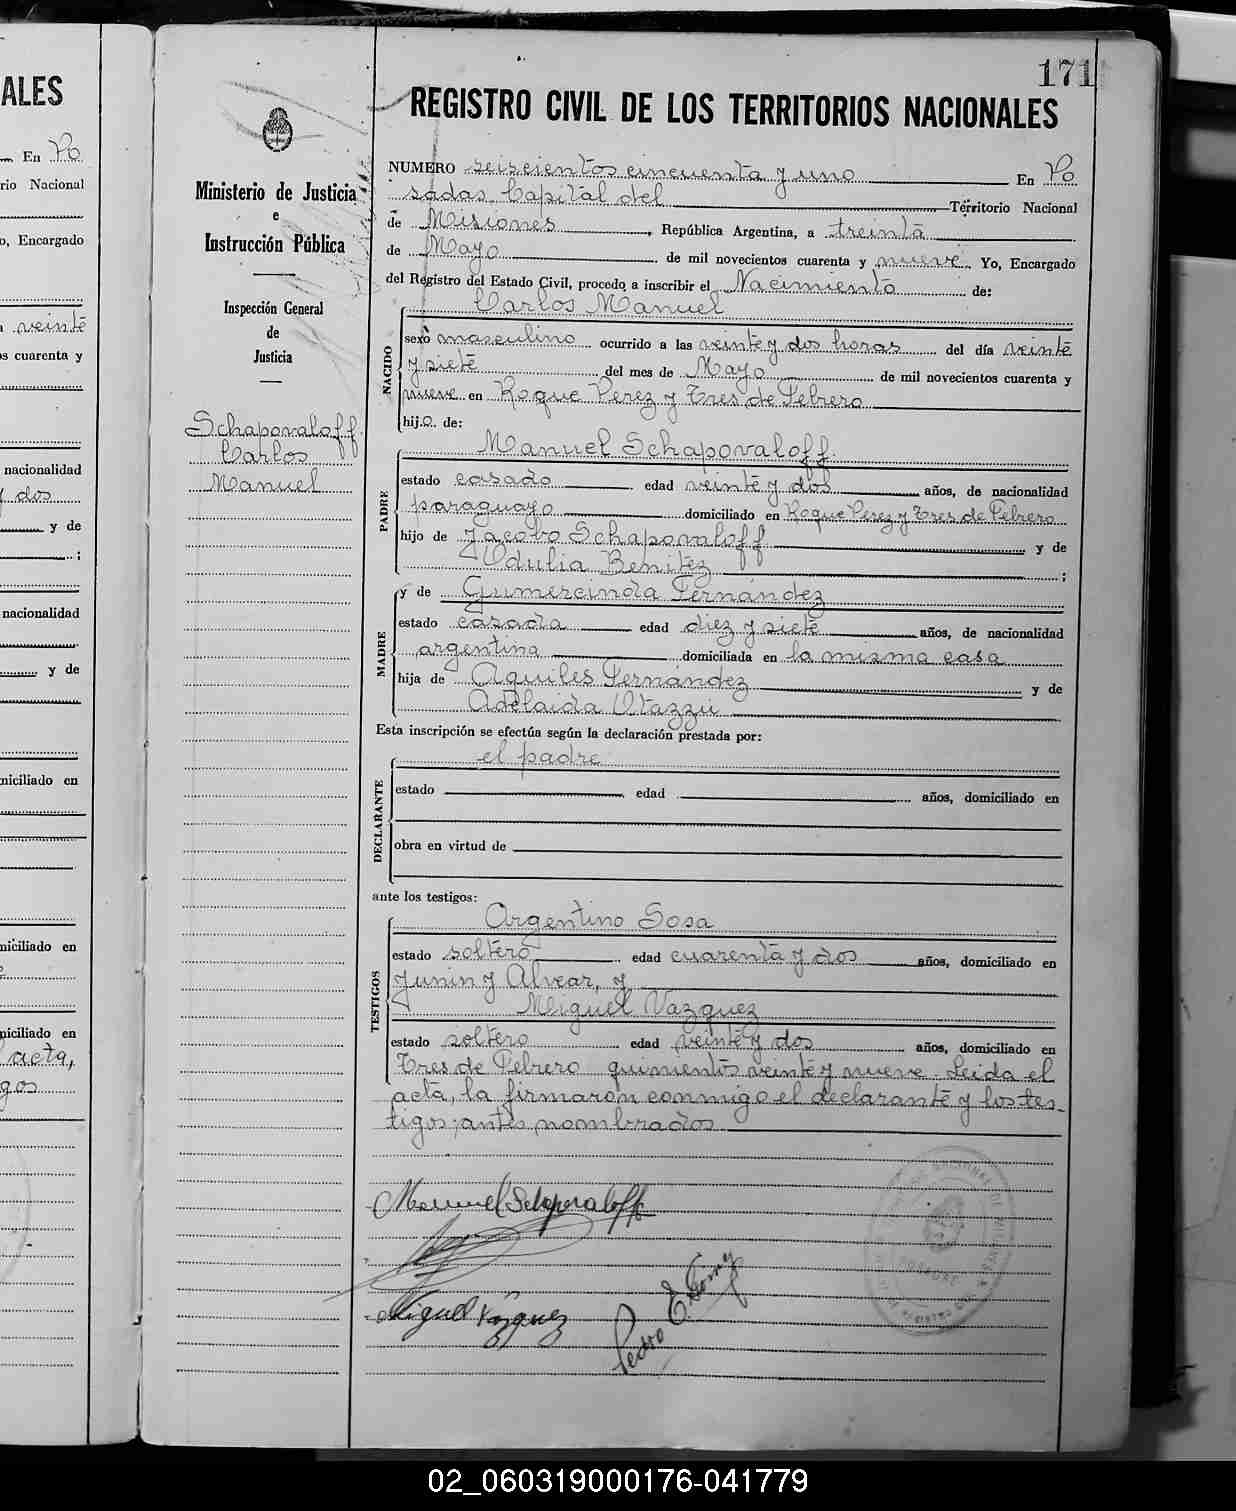 ALES
En Po
rio Nacional
o, Encargado
veinte
s cuarenta y
nacionalidad
y dos
y de
;
nacionalidad
y de
niciliado en
niciliado en
niciliado en
acta,
gos
Ministerio de Justicia
e
Instrucción Pública
Inspección General
de
Justicia
Schapovaloff
Carlos
Manuel
171
REGISTRO CIVIL DE LOS TERRITORIOS NACIONALES
NUMERO seiscientos cincuenta y uno En Po
sadas Capital del Territorio Nacional
de Misiones, República Argentina, a treinta
de Mayo de mil novecientos cuarenta y nueve. Yo, Encargado
del Registro del Estado Civil, procedo a inscribir el Nacimiento de:
NACIDO
Carlos Manuel
sexo masculino ocurrido a las veinte y dos horas del día veinte
y siete del mes de Mayo de mil novecientos cuarenta y
nueve en Roque Perez y Tres de Febrero
hijo de:
PADRE
Manuel Schapovaloff
estado casado edad veinte y dos años, de nacionalidad
paraguayo domiciliado en Roque Perez y Tres de Febrero
hijo de Jacobo Schapovaloff y de
Odulia Benitez ;
MADRE
y de Gumercinda Fernández
estado casada edad diez y siete años, de nacionalidad
argentina domiciliada en la misma casa
hija de Aquiles Fernández y de
Adelaida Otazzu
Esta inscripción se efectúa según la declaración prestada por:
DECLARANTE
el padre
estado edad años, domiciliado en
obra en virtud de
ante los testigos:
TESTIGOS
Argentino Sosa
estado soltero edad cuarenta y dos años, domiciliado en
Junin y Alvear, y
Miguel Vazquez
estado soltero edad veinte y dos años, domiciliado en
Tres de Febrero quinientos veinte y nueve. Leida el
acta, la firmaron conmigo el declarante y los tes-
tigos antes nombrados.
Manuel Schapovaloff
Miguel Vazquez
Pedro E.
POSADAS
02_060319000176-041779